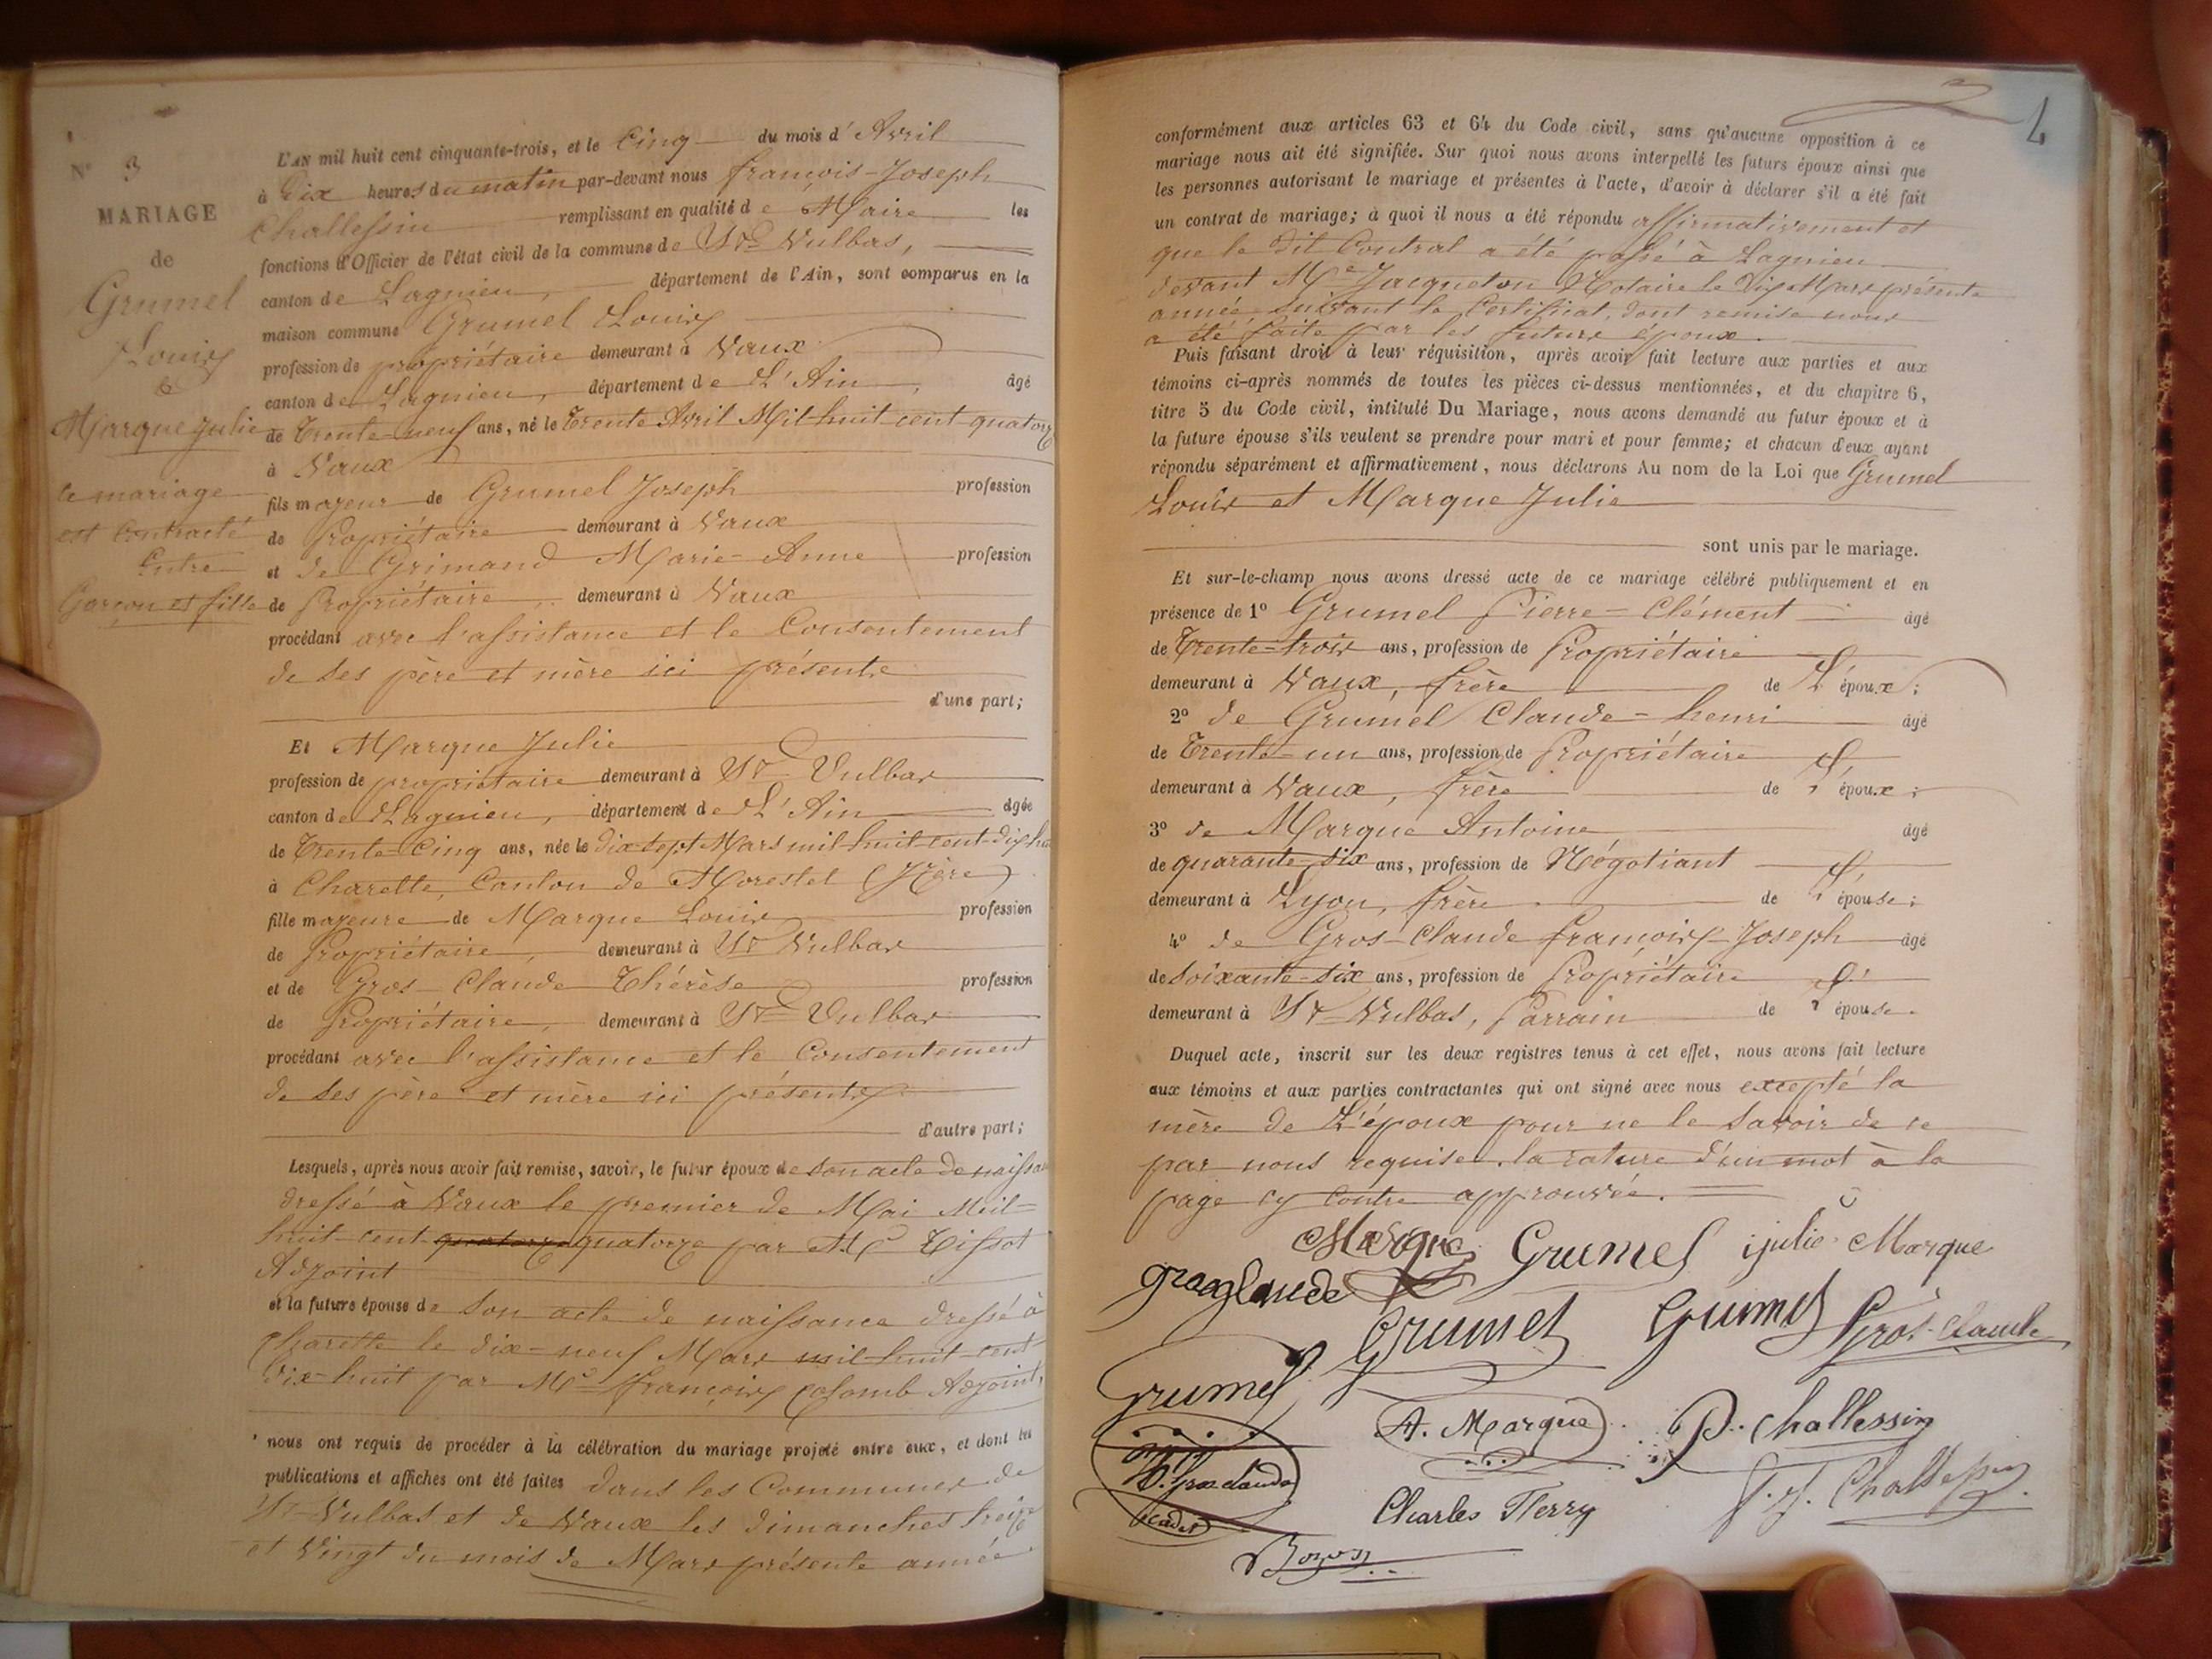 N° 3
MARIAGE
de
Grumel
Louis
&
Marque Julie
ce mariage
est contracté
Entre
Garçon et fille
L'AN mil huit cent cinquante-trois, et le Cinq du mois d' Avril
à Dix heures du matin par-devant nous françois-Joseph
Challessin remplissant en qualité de Maire les
fonctions d'Officier de l'état civil de la commune de St Vulbas,
canton de Lagnieu, département de l'Ain, sont comparus en la
maison commune Grumel Louis
profession de propriétaire demeurant à Vaux
canton de Lagnieu, département de L'Ain, âgé
de Trente-neuf ans, né le Trente Avril Mil-huit-cent-quatorze
à Vaux
fils majeur de Grumel Joseph profession
de Propriétaire demeurant à Vaux
et de Grimand Marie-Anne profession
de Propriétaire, demeurant à Vaux
procédant avec l'assistance et le Consentement
de ses père et mère ici présents
d'une part;
Et Marque Julie
profession de propriétaire demeurant à St Vulbas
canton de Lagnieu, département de L'Ain âgée
de Trente-Cinq ans, née le dix-sept Mars mil-huit-cent-dix-hui
à Charette, Canton de Morestel (Isère)
fille majeure de Marque Louis profession
de Propriétaire, demeurant à St Vulbas
et de Gros-Claude Thérèse profession
de Propriétaire, demeurant à St Vulbas
procédant avec l'assistance et le Consentement
de ses père et mère ici présents
d'autre part;
Lesquels, après nous avoir fait remise, savoir, le futur époux de son acte de naissan
dressé à Vaux le premier de Mai Mil-
huit-cent quatorze quatorze par Mr Tissot
Adjoint
et la future épouse de son acte de naissance dressé à
Charette le dix-neuf Mars mil-huit-cent-
dix-huit par Mr françois Colomb Adjoint,
nous ont requis de procéder à la célébration du mariage projeté entre eux, et dont les
publications et affiches ont été faites dans les Communes de
St Vulbas et de Vaux les dimanches treize
et Vingt du mois de Mars présente année
4
conformément aux articles 63 et 64 du Code civil, sans qu'aucune opposition à ce
mariage nous ait été signifiée. Sur quoi nous avons interpellé les futurs époux ainsi que
les personnes autorisant le mariage et présentes à l'acte, d'avoir à déclarer s'il a été fait
un contrat de mariage; à quoi il nous a été répondu affirmativement et
que le dit Contrat a été passé à Lagnieu
devant Me Jacqueton Notaire le Dix Mars présente
année suivant le Certificat, dont remise nous
a été faite par les futurs époux.
Puis faisant droit à leur réquisition, après avoir fait lecture aux parties et aux
témoins ci-après nommés de toutes les pièces ci-dessus mentionnées, et du chapitre 6,
titre 5 du Code civil, intitulé Du Mariage, nous avons demandé au futur époux et à
la future épouse s'ils veulent se prendre pour mari et pour femme; et chacun d'eux ayant
répondu séparément et affirmativement, nous déclarons Au nom de la Loi que Grumel
Louis et Marque Julie
sont unis par le mariage.
Et sur-le-champ nous avons dressé acte de ce mariage célébré publiquement et en
présence de 1° Grumel Pierre-Clément âgé
de Trente-trois ans, profession de Propriétaire
demeurant à Vaux, frère de L'époux;
2° de Grumel Claude-henri âgé
de Trente-un ans, profession de Propriétaire
demeurant à Vaux, frère de L'époux;
3° de Marque Antoine âgé
de quarante-six ans, profession de Négotiant
demeurant à Lyon, frère de L'épouse;
4° de Gros-Claude françois-Joseph âgé
de soixante-six ans, profession de Propriétaire
demeurant à St Vulbas, Parrain de L'épouse.
Duquel acte, inscrit sur les deux registres tenus à cet effet, nous avons fait lecture
aux témoins et aux parties contractantes qui ont signé avec nous excepté la
mère de L'époux pour ne le savoir de ce
par nous requise. la rature d'un mot à la
page cy contre approuvée.
Marque Grumel julie Marque
grosglaude
Grumel Grumel Gros-Claude
Grumel
A. Marque P. Challessin
grosclaude
cadet
Charles Therry f. J. Challessin